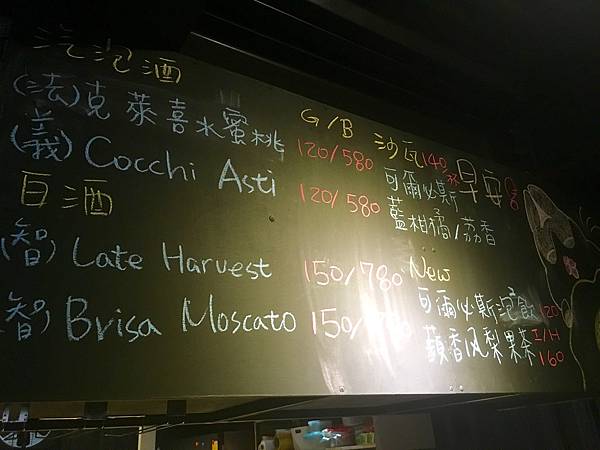 汽泡酒
G/B
(法)克萊喜水蜜桃 120/580
(義) Cocchi Asti 120/580
白酒
(智) Late Harvest 150/780
(智) Brisa Moscato 150/
沙瓦 140/杯
可爾必斯
藍柑橘/荔香
早安
New
可爾必斯泡飲 120
蘋香鳳梨果茶 I/H 160